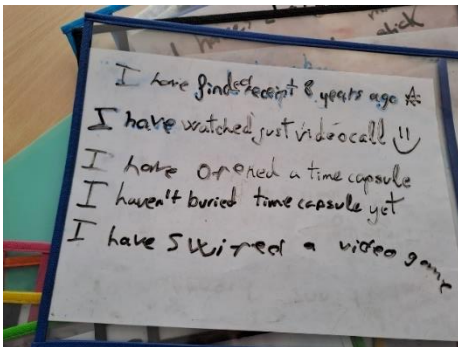 I have finded receipt 8 years ago ☆
I have watched just videocall
I have opened a time capsule
I haven't buried time capsule yet
I have swired a video game